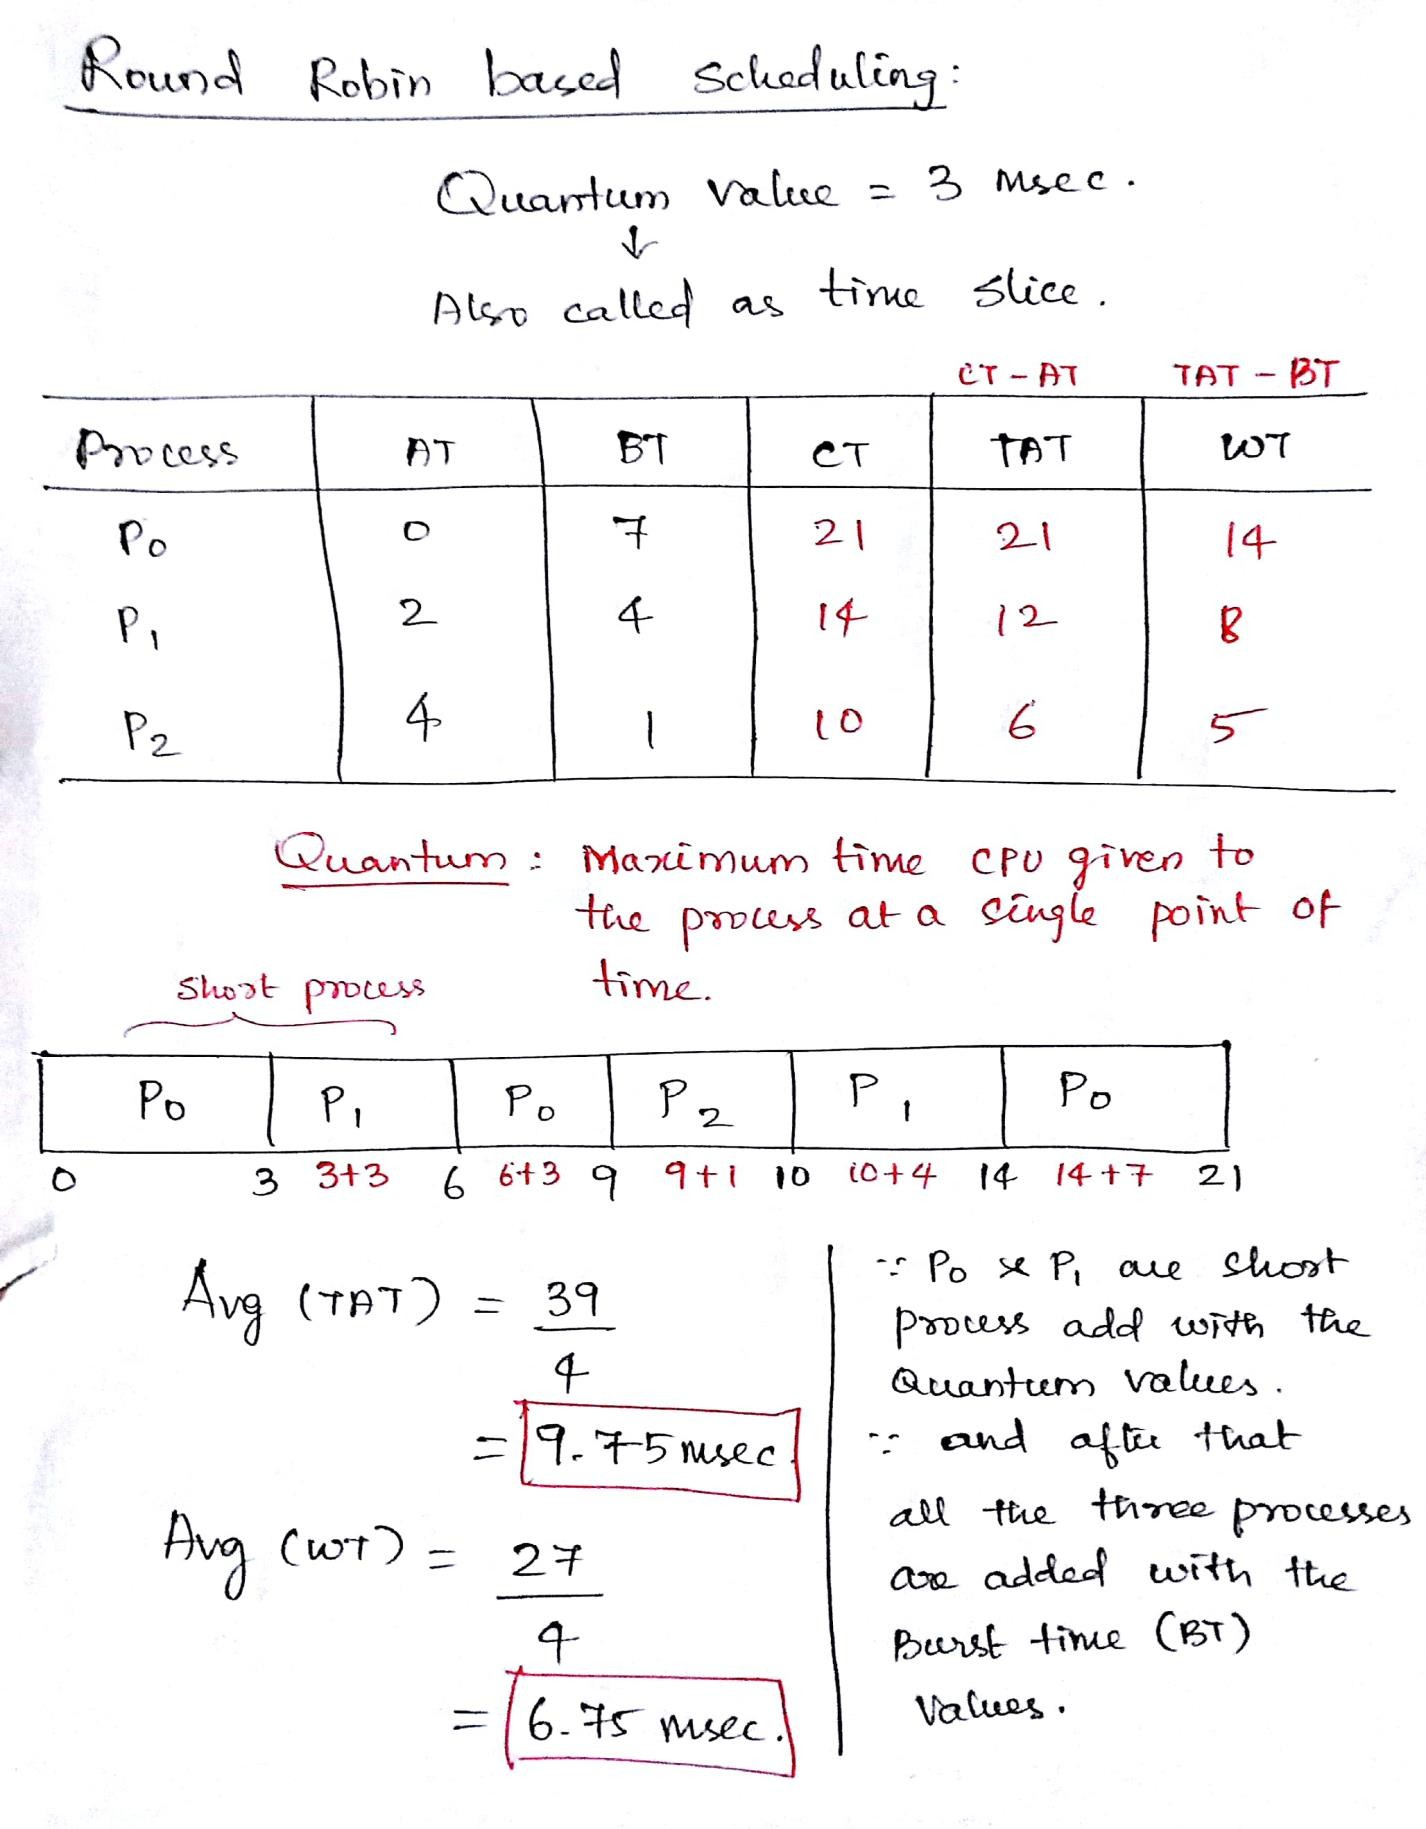 Round Robin based Scheduling:
Quantum value = 3 msec.
↓
Also called as time slice.
CT - AT TAT - BT
Process AT BT CT TAT WT
P0 0 7 21 21 14
P1 2 4 14 12 8
P2 4 1 10 6 5
Quantum: Maximum time CPU given to
the process at a single point of
time.
Short process
P0 P1 P0 P2 P1 P0
0 3 3+3 6 6+3 9 9+1 10 10+4 14 14+7 21
Avg (TAT) = 39
4
= 9.75 msec.
Avg (WT) = 27
4
= 6.75 msec.
∵ P0 & P1 are short
process add with the
Quantum values.
∵ and after that
all the three processes
are added with the
Burst time (BT)
Values.